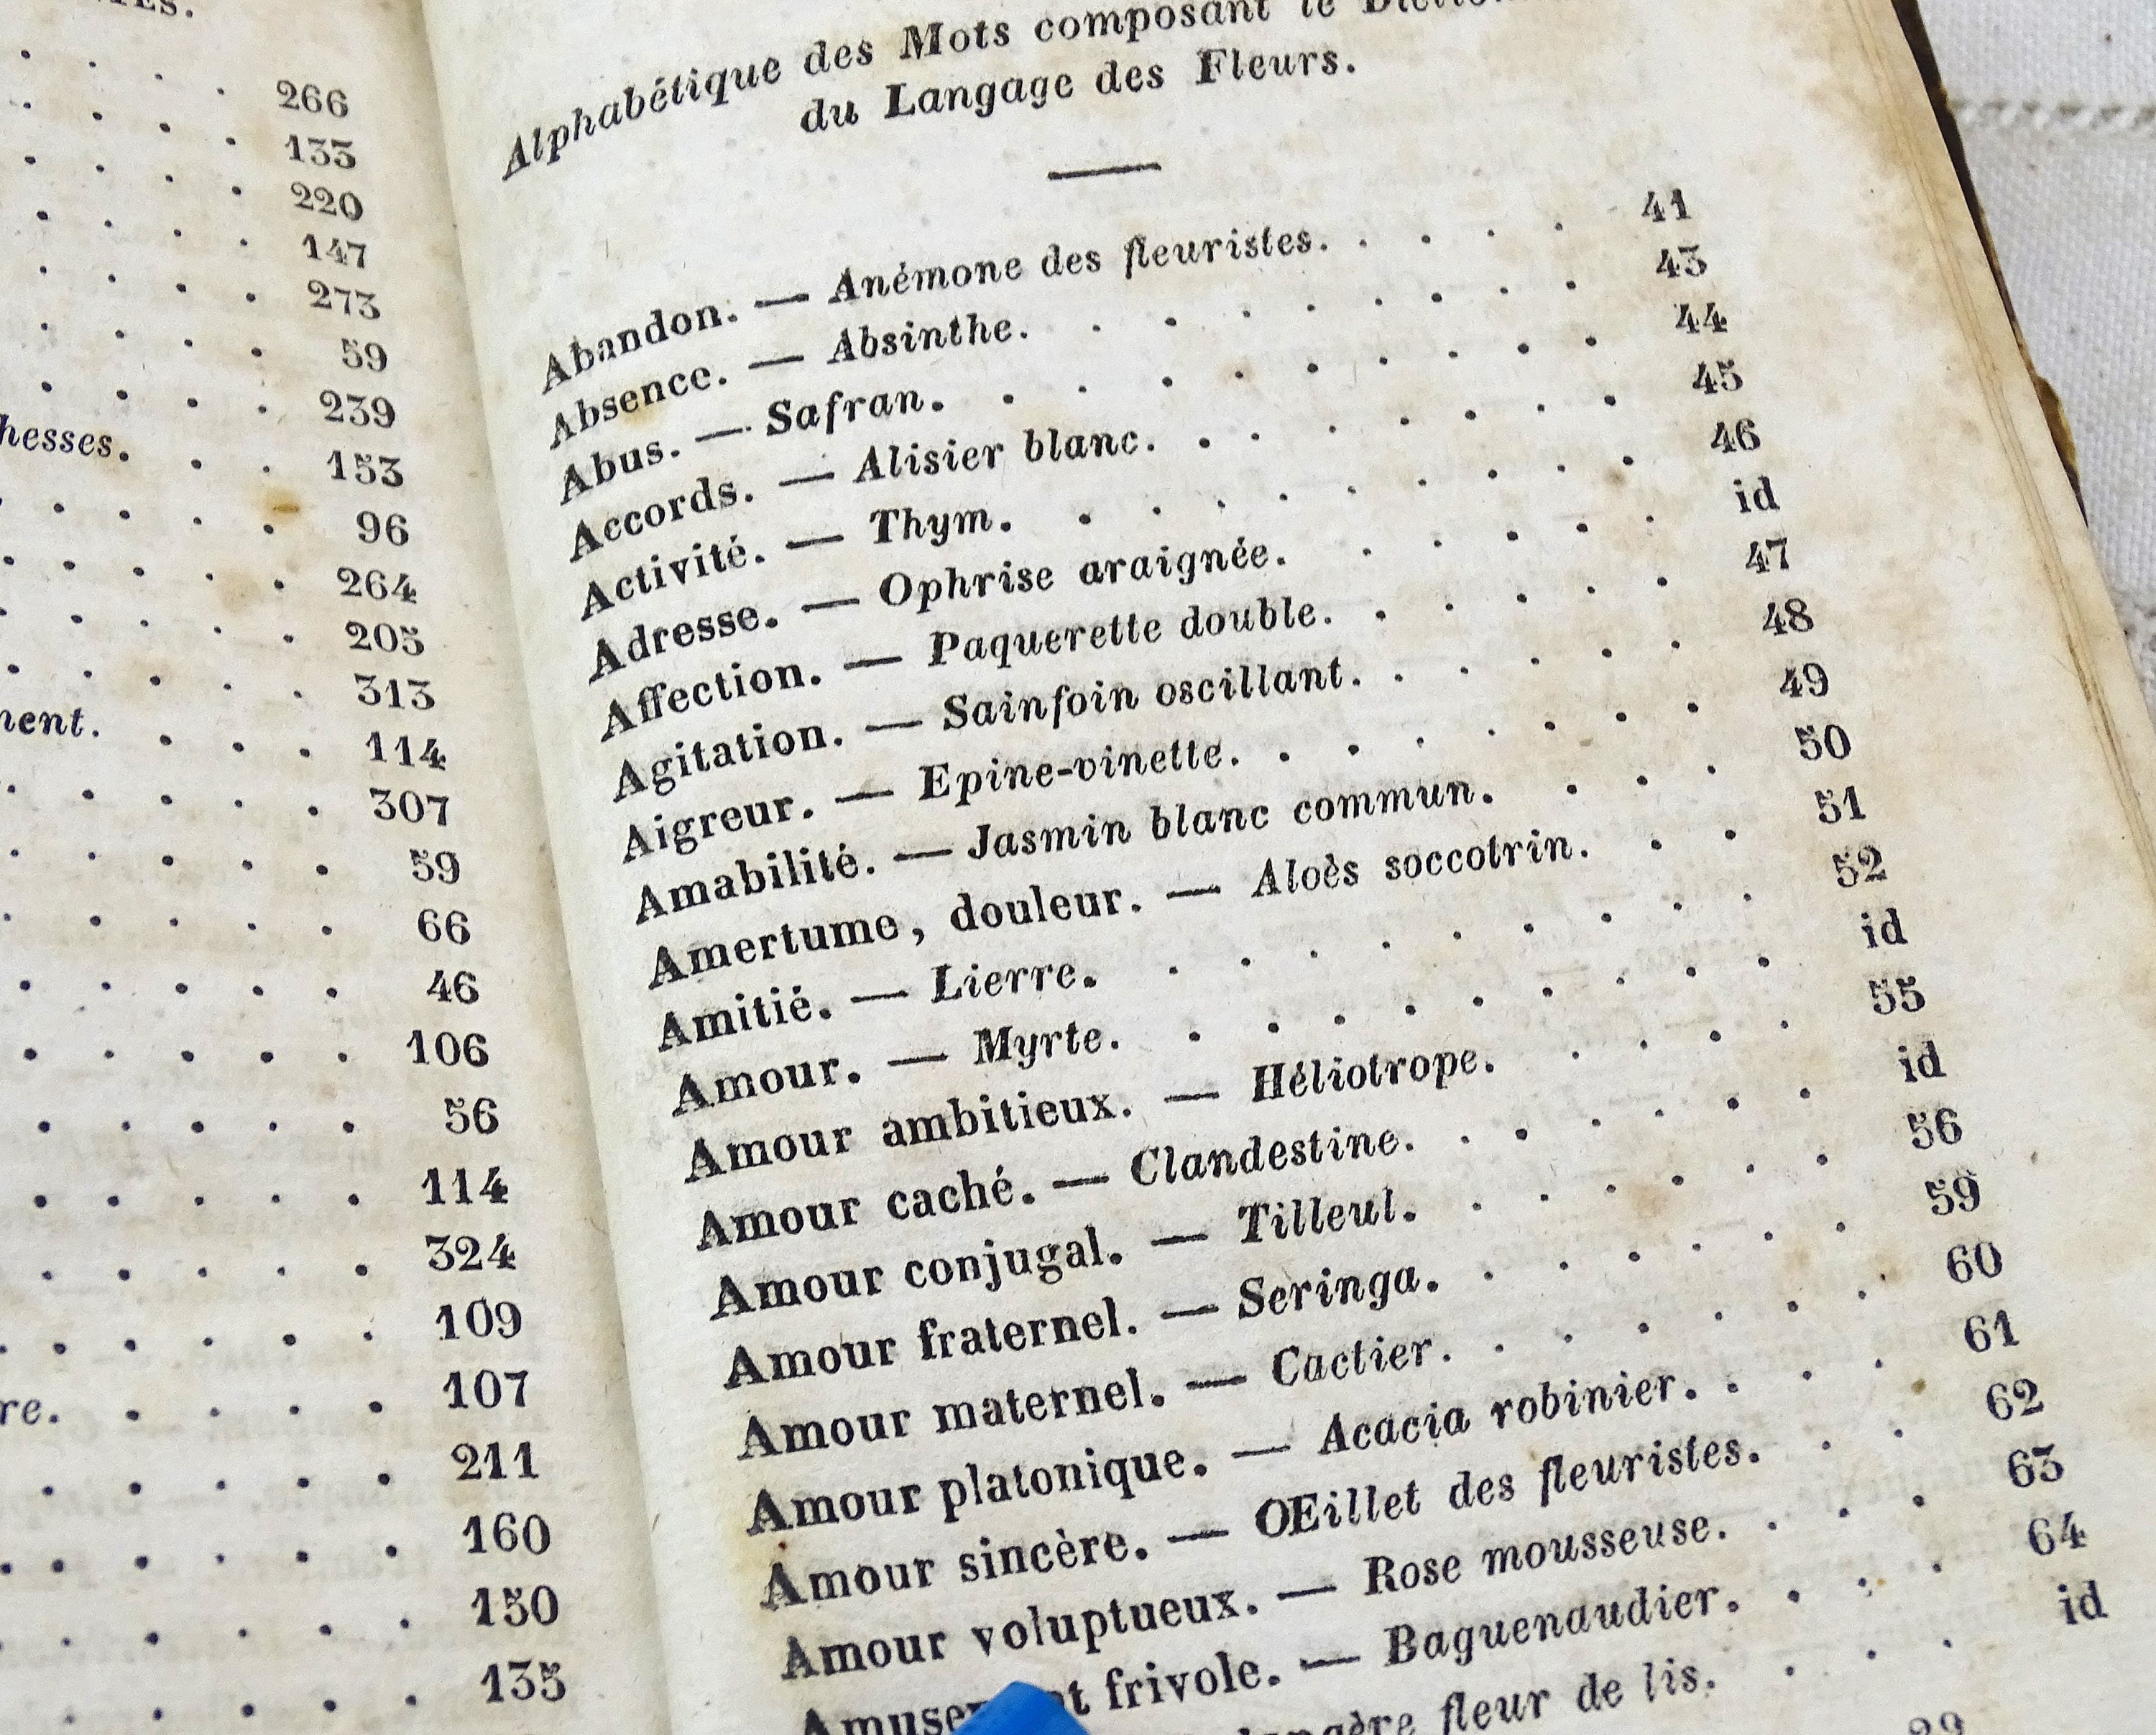 266
133
220
147
273
59
239
hesses. . . 153
96
264
205
313
ment. . . . 114
307
59
66
46
106
56
114
324
109
re. . . . . . 107
211
160
150
135
Alphabétique des Mots composant le
du Langage des Fleurs.
Abandon. — Anémone des fleuristes. . . . . 41
Absence. — Absinthe. . . . . . . . 43
Abus. — Safran. . . . . . . . . 44
Accords. — Alisier blanc. . . . . . . . 45
Activité. — Thym. . . . . . . . . 46
Adresse. — Ophrise araignée. . . . . . id
Affection. — Paquerette double. . . . . . 47
Agitation. — Sainfoin oscillant. . . . . . 48
Aigreur. — Epine-vinette. . . . . . . . 49
Amabilité. — Jasmin blanc commun. . . . 50
Amertume, douleur. — Aloès soccotrin. . . 51
Amitié. — Lierre. . . . . . . . . 52
Amour. — Myrte. . . . . . . . . id
Amour ambitieux. — Héliotrope. . . . . 55
Amour caché. — Clandestine. . . . . . . id
Amour conjugal. — Tilleul. . . . . . . 56
Amour fraternel. — Seringa. . . . . . . 59
Amour maternel. — Cactier. . . . . . . 60
Amour platonique. — Acacia robinier. . . . 61
Amour sincère. — Œillet des fleuristes. . . 62
Amour voluptueux. — Rose mousseuse. . . . 63
frivole. — Baguenaudier. . . . 64
fleur de lis. . . . id